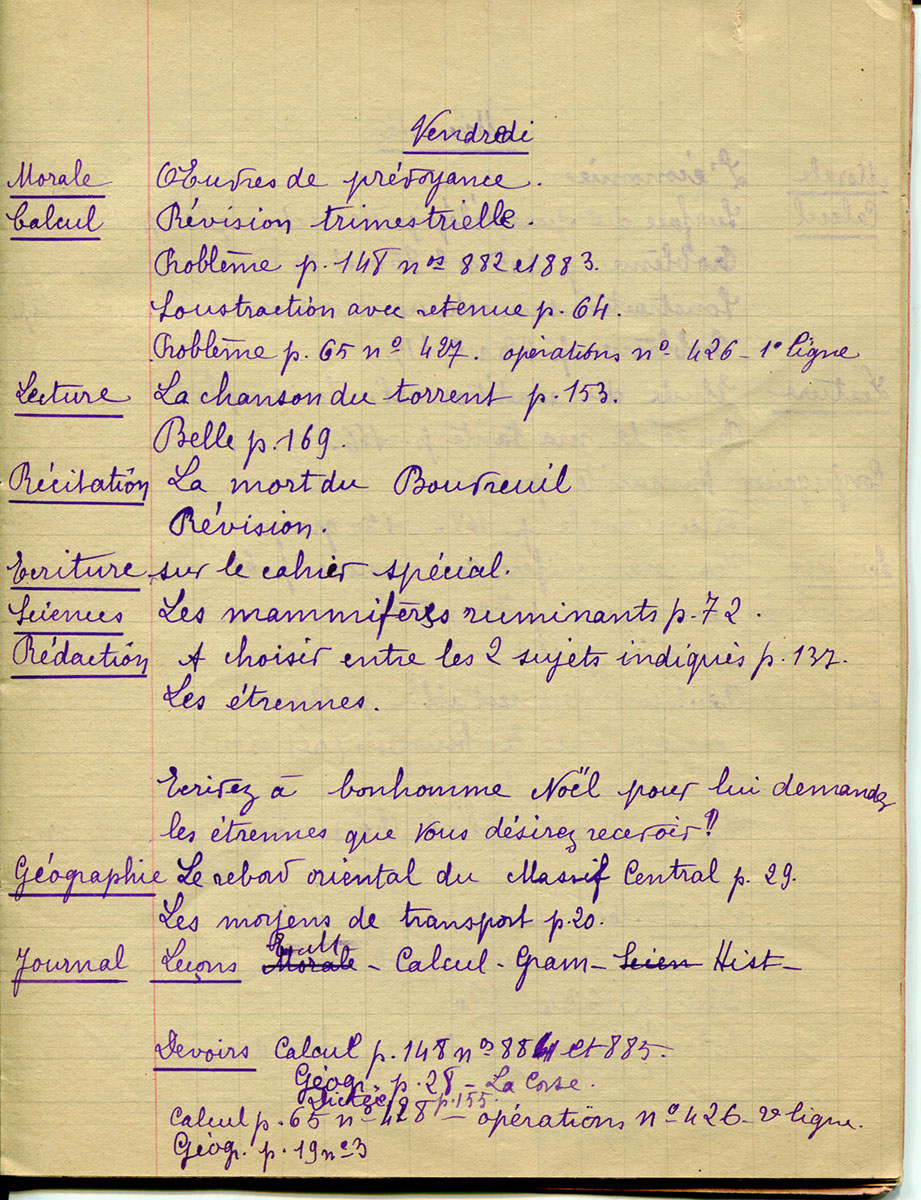 Vendredi
Morale Œuvres de prévoyance.
Calcul Révision trimestrielle.
Problème p. 148 nos 882 et 883.
Soustraction avec retenue p. 64.
Problème p. 65 no 427. opérations no 426 - 1e ligne
Lecture La chanson du torrent p. 153.
Belle p. 169.
Récitation La mort du Bouvreuil
Révision.
Ecriture sur le cahier spécial.
Sciences Les mammifères ruminants p. 72.
Rédaction A choisir entre les 2 sujets indiqués p. 137.
Les étrennes.
Ecrivez à bonhomme Noël pour lui demander
les étrennes que vous désirez recevoir?
Géographie Le rebord oriental du Massif Central p. 29.
Les moyens de transport p. 20.
Journal Leçons Morale - Calcul - Gram - Scien Hist -
Devoirs Calcul p. 148 nos 884 et 885.
Géog. p. 28 - La Corse.
Dictée p. 155.
Calcul p. 65 no 428 - opérations no 426 - 2e ligne.
Géog. p. 19 no 3